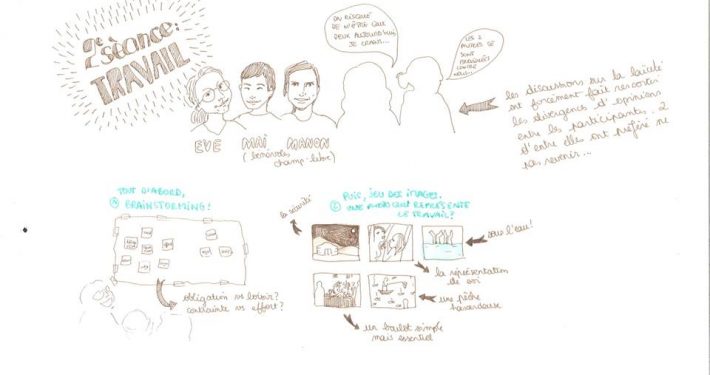 2e séance:
TRAVAIL
ON RISQUE
DE N'ÊTRE QUE
DEUX AUJOURD'HUI,
JE CRAINS...
LES 2
AUTRES SE
SONT
CONTRE
NOUS...
EVE
MAI
MANON
(bénévoles
champ-libre)
les discussions sur la laïcité
ont forcément fait ressortir
les divergences d'opinions
entre les participants... 2
d'entre elles ont préféré ne
pas revenir...
TOUT D'ABORD,
① BRAINSTORMING!
obligation vs loisir?
contrainte vs effort?
PUIS, JEU DES IMAGES.
② UNE PHOTO QUI REPRÉSENTE
LE TRAVAIL?
la sécurité
sous l'eau!
la représentation
de soi
une pêche
hasardeuse
un boulot simple
mais essentiel